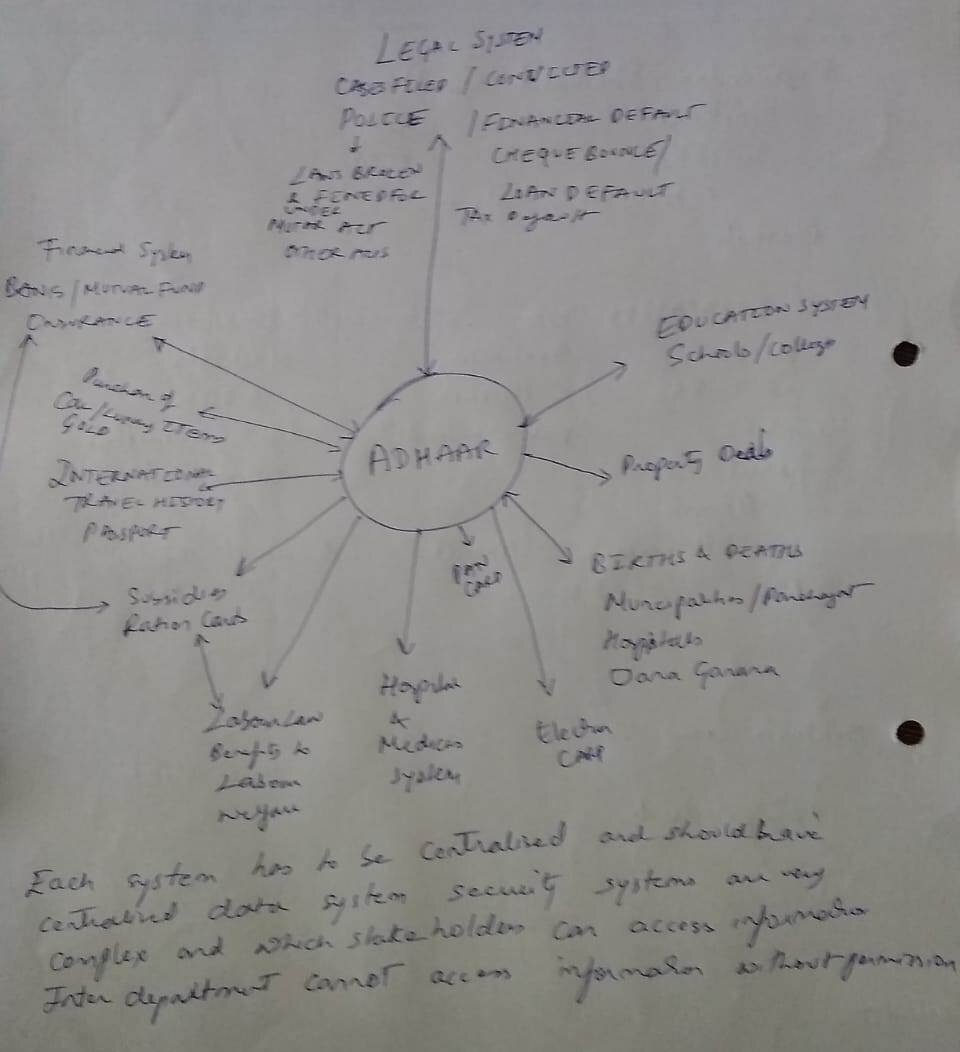 LEGAL SYSTEM
CASE FILED / CONVICTED
POLICE / FINANCIAL DEFAULT
CHEQUE BOUNCE /
LOAN DEFAULT
TAX Default
LAWS BROKEN
& FINED FOR
UNDER
MOTOR ACT
OTHER ACTS
Financial System
BANKS / MUTUAL FUND
INSURANCE
EDUCATION SYSTEM
Schools / College
Purchase of
Car / Luxury ITEMS
GOLD
ADHAAR
Property Deals
INTERNATIONAL
TRAVEL HISTORY
PASSPORT
PAN
CARD
BIRTHS & DEATHS
Muncipalties / Panchayat
Hospitals
Jana Ganana
Subsidies
Ration Cards
Labour Law
Benefits to
Labour
Hospital
&
Medical
System
Election
CARD
Each system has to be centralised and should have
centralised data system security systems are very
complex and which stakeholders can access information
Inter department cannot access information without permission